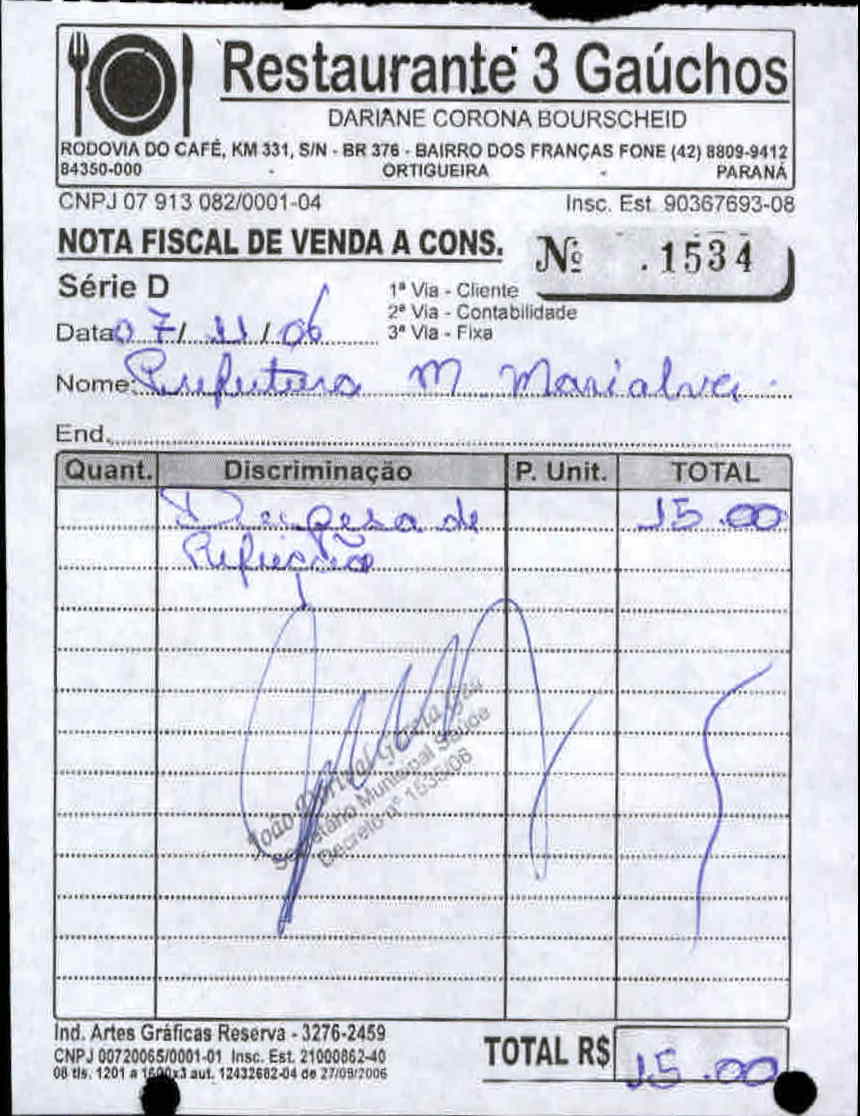 Restaurante 3 Gaúchos
DARIANE CORONA BOURSCHEID
RODOVIA DO CAFÉ, KM 331, S/N - BR 376 - BAIRRO DOS FRANÇAS FONE (42) 8809-9412
84350-000 - ORTIGUEIRA - PARANÁ
CNPJ 07 913 082/0001-04 Insc. Est. 90367693-08
NOTA FISCAL DE VENDA A CONS. Nº .1534
Série D
1ª Via - Cliente
2ª Via - Contabilidade
3ª Via - Fixa
Data 07/ 11 / 06
Nome: Prefeitura M. Marialva
End.
Quant. Discriminação P. Unit. TOTAL
Despesa de 15.00
Refeição
Secretário Municipal Saúde
Decreto nº 1535/06
Ind. Artes Gráficas Reserva - 3276-2459
CNPJ 00720065/0001-01 Insc. Est. 21000862-40
08 tls. 1201 a 1600x3 aut. 12432682-04 de 27/09/2006
TOTAL R$ 15.00